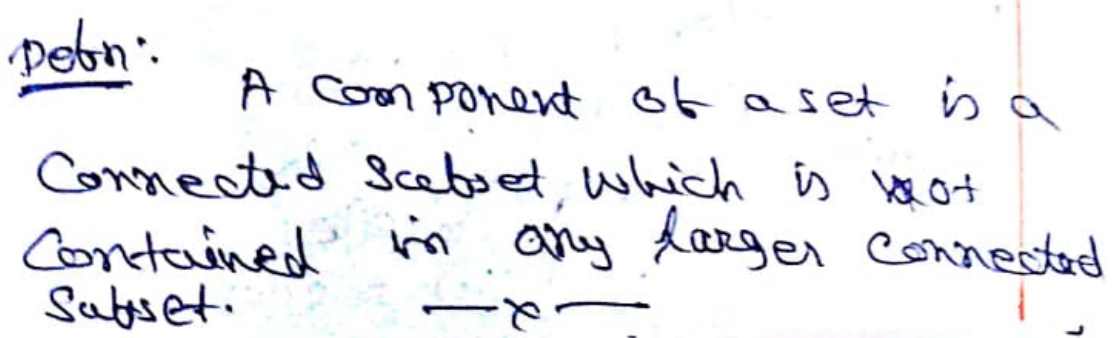 Defn:
A component of a set is a
Connected Subset, which is not
Contained in any larger connected
Subset. —x—